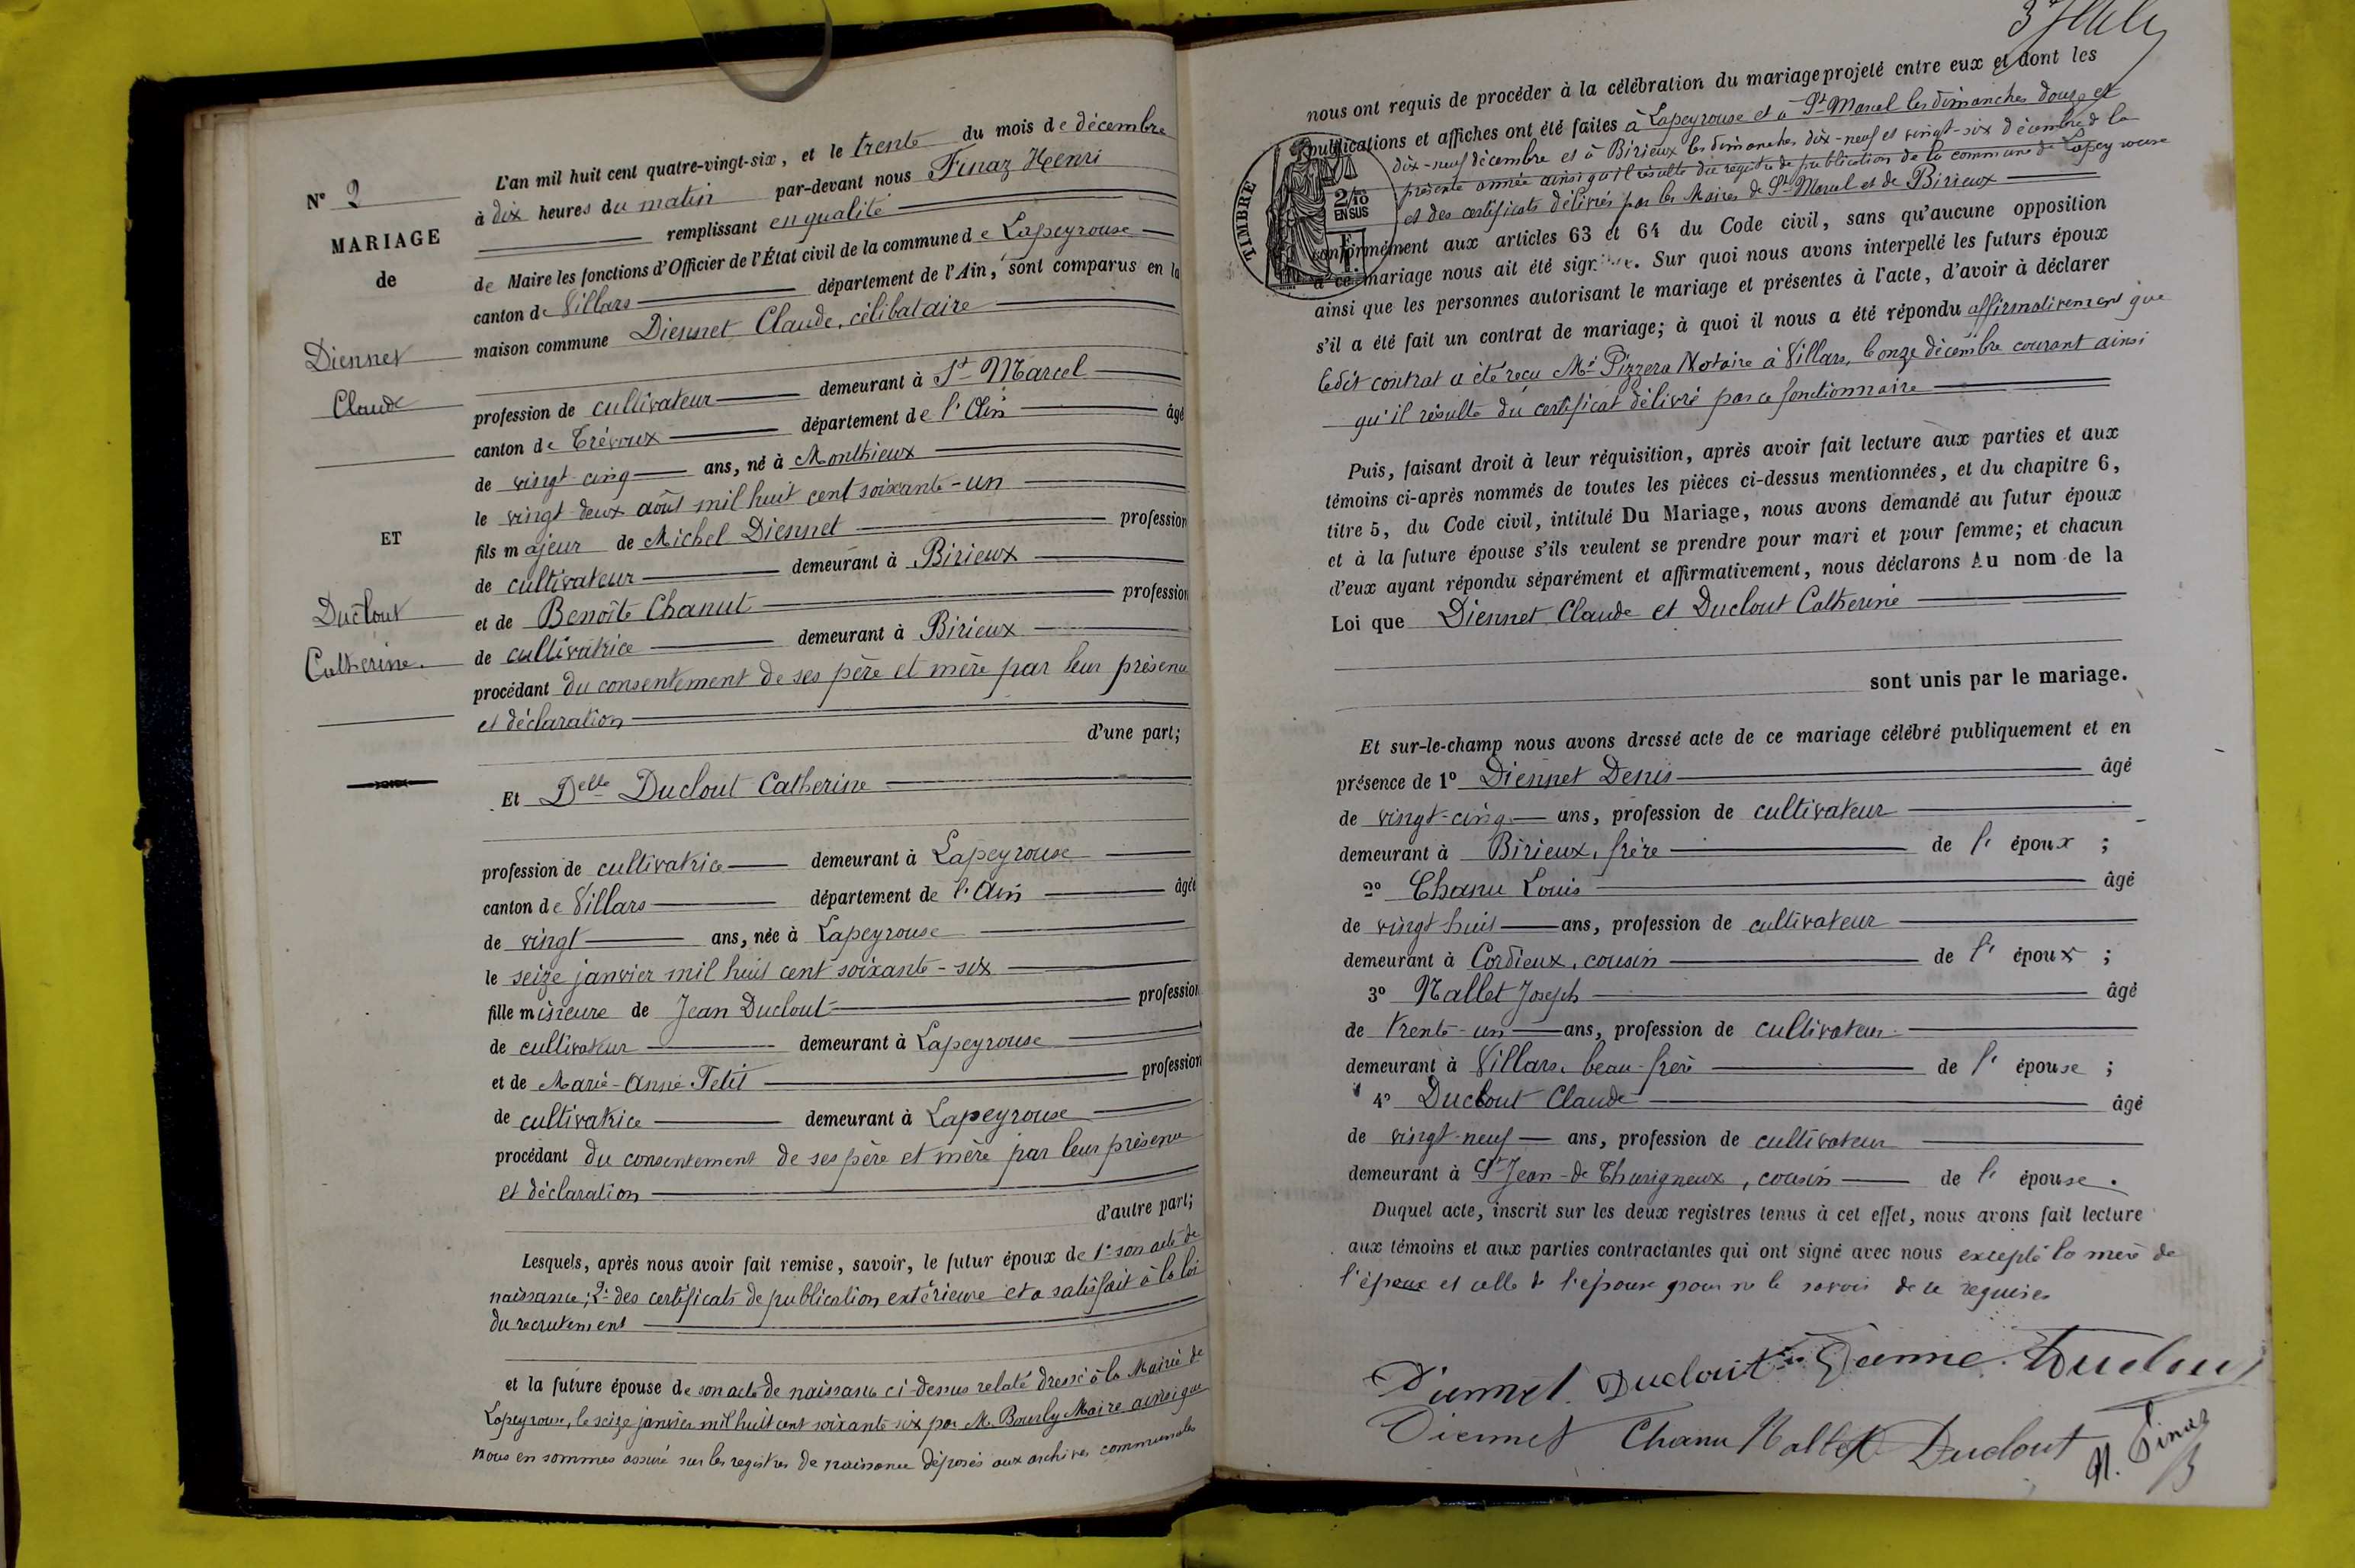 N° 2
MARIAGE
de
Diennet
Claude
ET
Duclout
Catherine.
L'an mil huit cent quatre-vingt-six, et le trente du mois de décembre
à dix heures du matin par-devant nous Finaz Henri
remplissant en qualité
de Maire les fonctions d'Officier de l'État civil de la commune de Lapeyrouse
canton de Villars département de l'Ain, sont comparus en la
maison commune Diennet Claude, célibataire
profession de cultivateur demeurant à St Marcel
canton de Trévoux département de l'Ain âgé
de vingt-cinq ans, né à Monthieux
le vingt-deux août mil huit cent soixante-un
fils majeur de Michel Diennet profession
de cultivateur demeurant à Birieux
et de Benoîte Chanut profession
de cultivatrice demeurant à Birieux
procédant du consentement de ses père et mère par leur présence
et déclaration
d'une part;
Et Delle Duclout Catherine
profession de cultivatrice demeurant à Lapeyrouse
canton de Villars département de l'Ain âgée
de vingt ans, née à Lapeyrouse
le seize janvier mil huit cent soixante-six
fille mineure de Jean Duclout profession
de cultivateur demeurant à Lapeyrouse
et de Marie-Anne Petit profession
de cultivatrice demeurant à Lapeyrouse
procédant du consentement de ses père et mère par leur présence
et déclaration
d'autre part;
Lesquels, après nous avoir fait remise, savoir, le futur époux de 1° son acte de
naissance; 2° des certificats de publication extérieure et a satisfait à la loi
du recrutement
et la future épouse de son acte de naissance ci-dessus relaté dressé à la Mairie de
Lapeyrouse, le seize janvier mil huit cent soixante six par M. Bourly Maire ainsi que
nous en sommes assuré sur les registres de naissance déposés aux archives communales
nous ont requis de procéder à la célébration du mariage projeté entre eux et dont les
publications et affiches ont été faites à Lapeyrouse et à St Marcel les dimanches douze et
dix-neuf décembre et à Birieux les dimanches dix-neuf et vingt-six décembre de la
présente année ainsi qu'il résulte du registre de publication de la commune de Lapeyrouse
et des certificats délivrés par les Maires de St Marcel et de Birieux
TIMBRE
2/10
EN SUS
conformément aux articles 63 et 64 du Code civil, sans qu'aucune opposition
à ce mariage nous ait été signifiée. Sur quoi nous avons interpellé les futurs époux
ainsi que les personnes autorisant le mariage et présentes à l'acte, d'avoir à déclarer
s'il a été fait un contrat de mariage; à quoi il nous a été répondu affirmativement que
ledit contrat a été reçu Me Pizzera Notaire à Villars, le onze décembre courant ainsi
qu'il résulte du certificat délivré par ce fonctionnaire
Puis, faisant droit à leur réquisition, après avoir fait lecture aux parties et aux
témoins ci-après nommés de toutes les pièces ci-dessus mentionnées, et du chapitre 6,
titre 5, du Code civil, intitulé Du Mariage, nous avons demandé au futur époux
et à la future épouse s'ils veulent se prendre pour mari et pour femme; et chacun
d'eux ayant répondu séparément et affirmativement, nous déclarons Au nom de la
Loi que Diennet Claude et Duclout Catherine
sont unis par le mariage.
Et sur-le-champ nous avons dressé acte de ce mariage célébré publiquement et en
présence de 1° Diennet Denis âgé
de vingt-cinq ans, profession de cultivateur
demeurant à Birieux, frère de l' époux ;
2° Chanu Louis âgé
de vingt huit ans, profession de cultivateur
demeurant à Cordieux, cousin de l' époux ;
3° Nallet Joseph âgé
de trente-un ans, profession de cultivateur
demeurant à Villars, beau-frère de l' épouse ;
4° Duclout Claude âgé
de vingt-neuf ans, profession de cultivateur
demeurant à St Jean-de-Thurigneux, cousin de l' épouse.
Duquel acte, inscrit sur les deux registres tenus à cet effet, nous avons fait lecture
aux témoins et aux parties contractantes qui ont signé avec nous excepté la mère de
l'époux et celle de l'épouse pour ne le savoir de ce requises
Diennet Duclout Duclout
Diennet Chanu Nallet Duclout H. Finaz